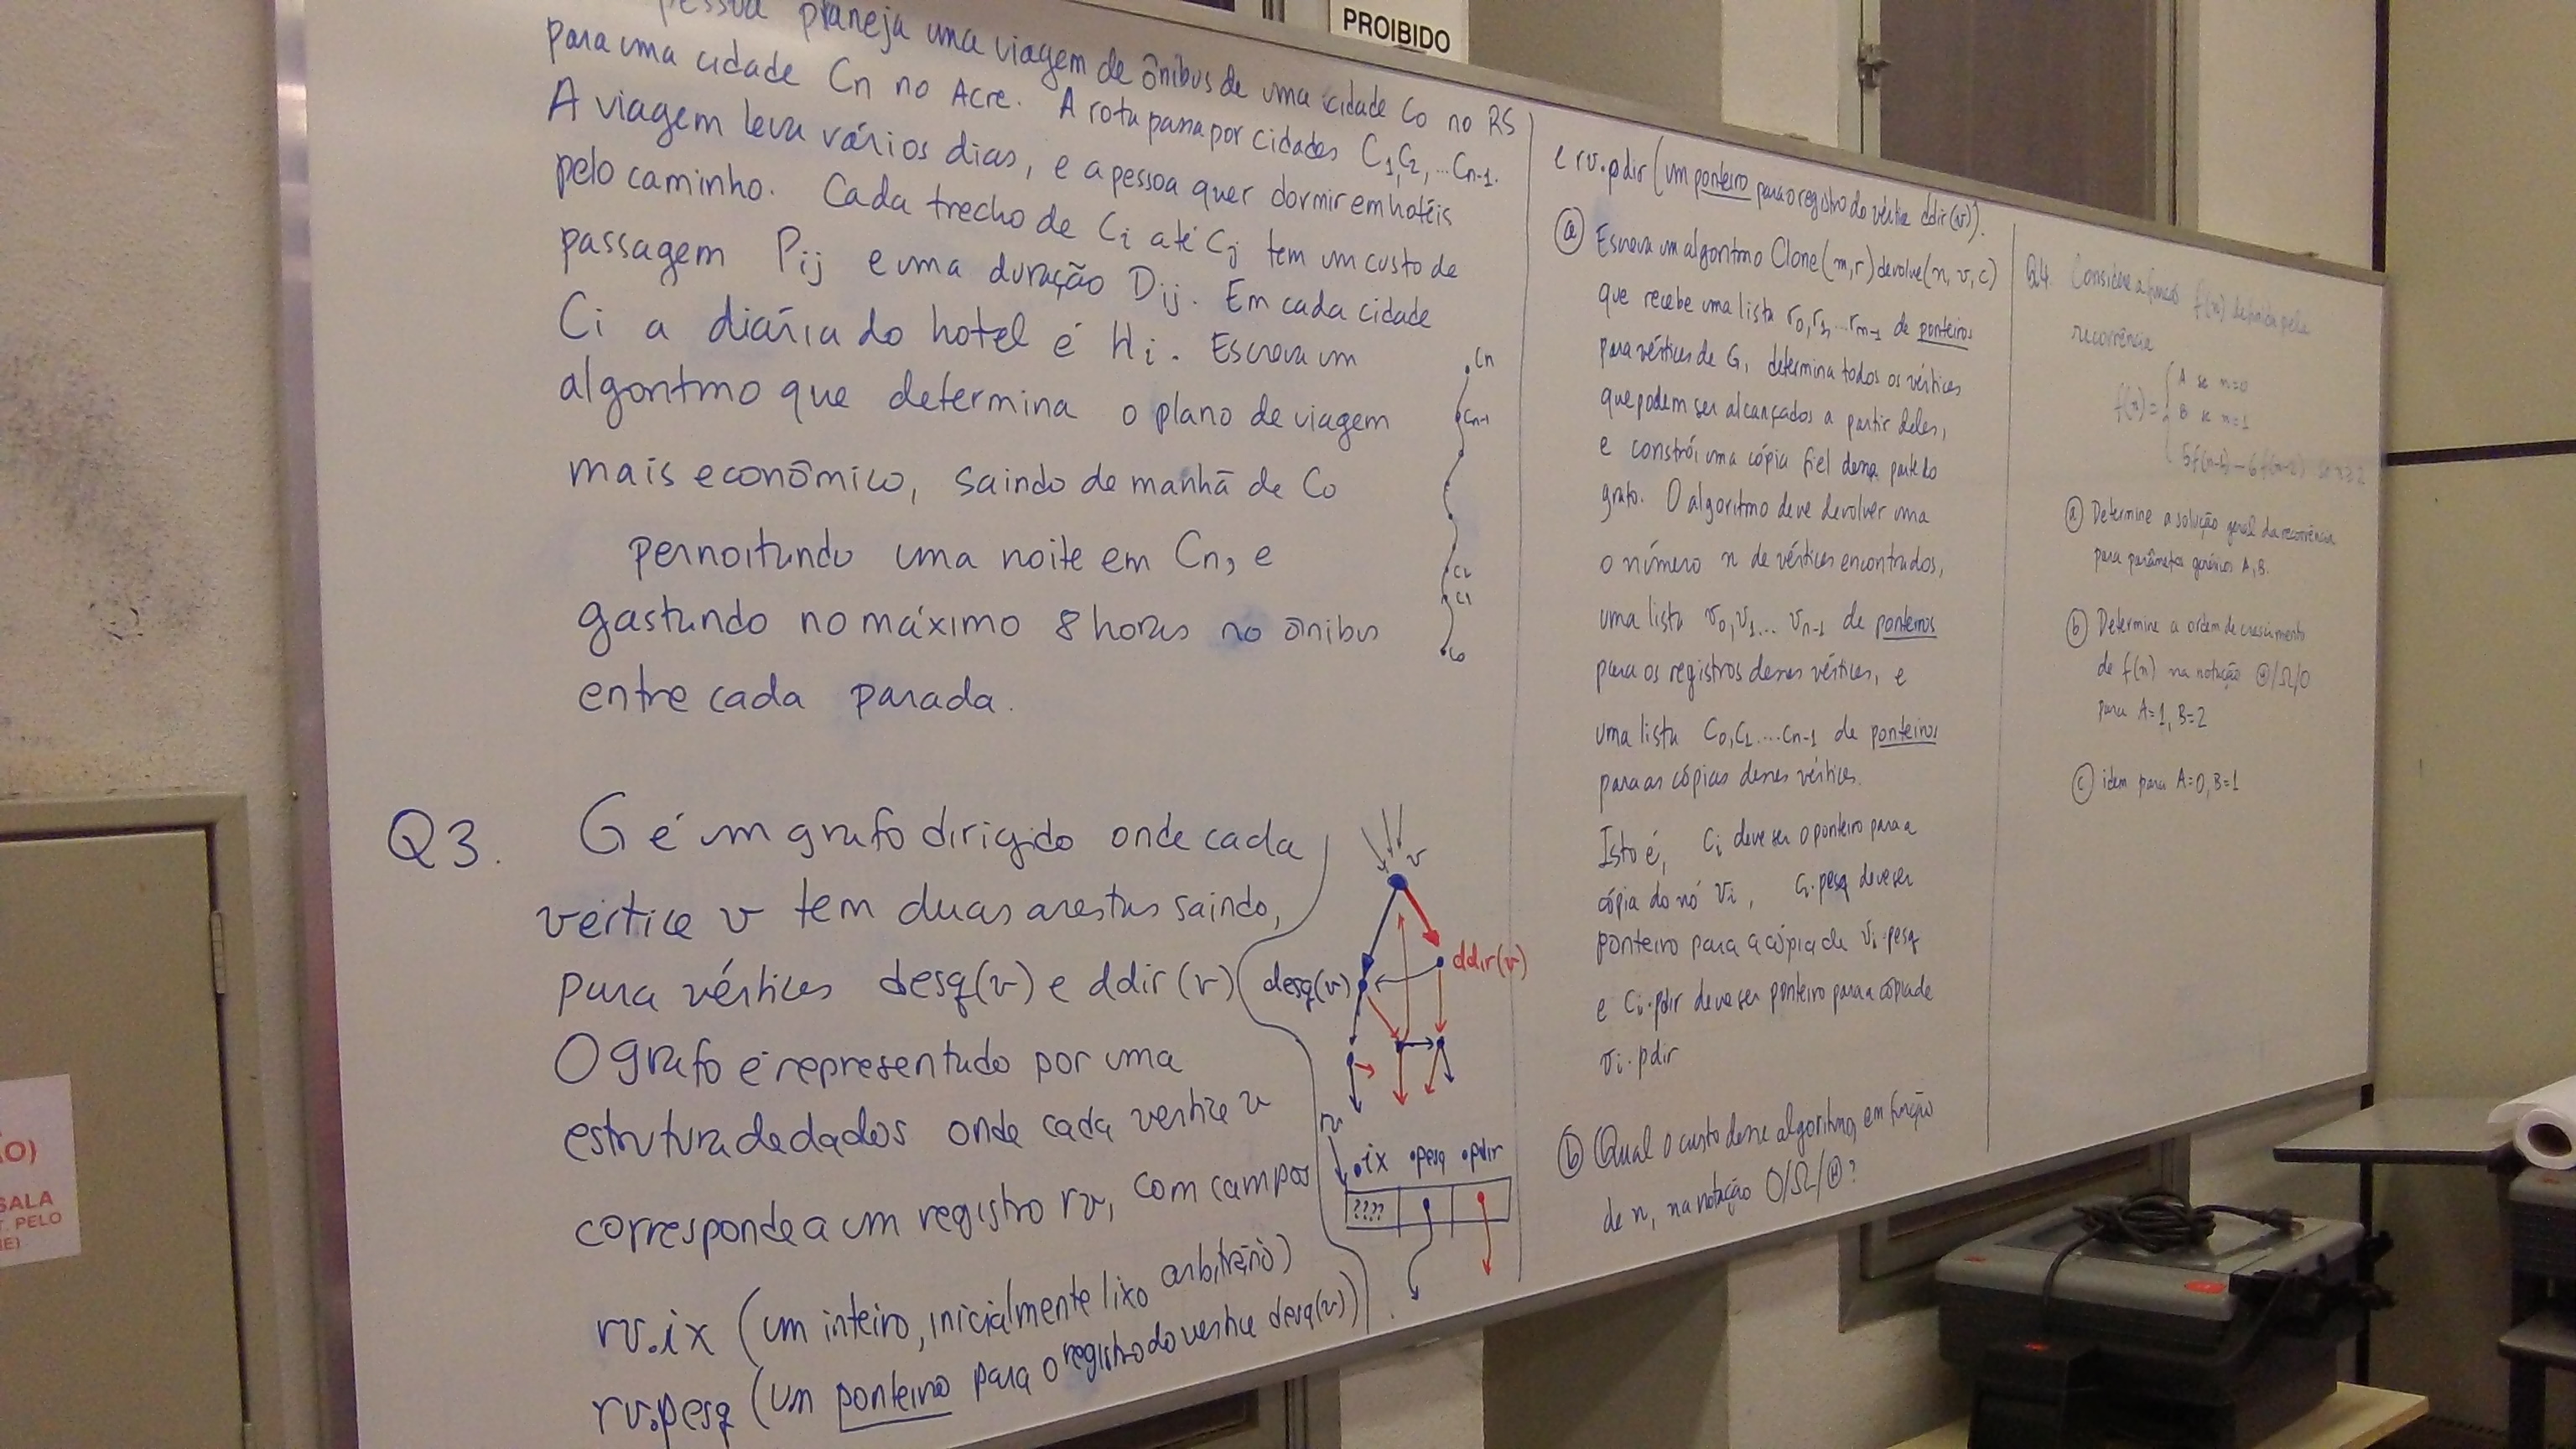 pessoa planeja uma viagem de ônibus de uma cidade C0 no RS
para uma cidade Cn no Acre. A rota passa por cidades C1, C2, ... Cn-1.
A viagem leva vários dias, e a pessoa quer dormir em hotéis
pelo caminho. Cada trecho de Ci até Cj tem um custo de
passagem Pij e uma duração Dij. Em cada cidade
Ci a diária do hotel é Hi. Escreva um
algoritmo que determina o plano de viagem
mais econômico, saindo de manhã de C0
pernoitando uma noite em Cn, e
gastando no máximo 8 horas no ônibus
entre cada parada.
Cn
Cn-1
C2
C1
C0
Q3. G é um grafo dirigido onde cada
vértice v tem duas arestas saindo,
para vértices desq(v) e ddir(v)
O grafo é representado por uma
estrutura de dados onde cada vertice v
corresponde a um registro rv, com campos
rv.ix (um inteiro, inicialmente lixo arbitrário)
rv.pesq (um ponteiro para o registro do vertice desq(v))
v
desq(v)
ddir(v)
rv
.ix .pesq .pdir
????
e rv.pdir (um ponteiro para o registro do vértice ddir(v)).
(a) Escreva um algoritmo Clone(m,r) devolve (n, v, c)
que recebe uma lista r0, r1, ... rm-1 de ponteiros
para vértices de G, determina todos os vértices
que podem ser alcançados a partir deles,
e constrói uma cópia fiel dessa parte do
grafo. O algoritmo deve devolver uma
o número n de vértices encontrados,
uma lista v0, v1 ... vn-1 de ponteiros
para os registros desses vértices, e
uma lista C0, C1 .... Cn-1 de ponteiros
para as cópias desses vértices.
Isto é, Ci deve ser o ponteiro para a
cópia do nó vi, ci.pesq deve ser
ponteiro para a cópia de vi.pesq
e Ci.pdir deve ser ponteiro para a cópia de
vi.pdir
(b) Qual o custo desse algoritmo, em função
de n, na notação O/Ω/Θ?
Q4. Considere a função f(n) definida pela
recorrência
f(n) = { A se n=0
B se n=1
5f(n-1) - 6f(n-2) se n≥2
(a) Determine a solução geral da recorrência
para parâmetros genéricos A, B.
(b) Determine a ordem de crescimento
de f(n) na notação Θ/Ω/O
para A=1, B=2
(c) idem para A=0, B=1
PROIBIDO
O)
SALA
T. PELO
E)